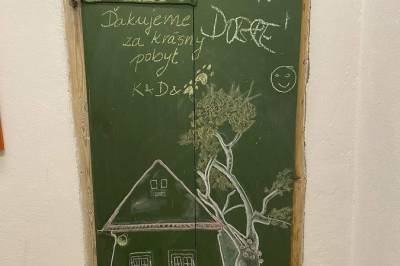 Ďakujeme
za krásny
pobyt
K & D &
DOBRE!